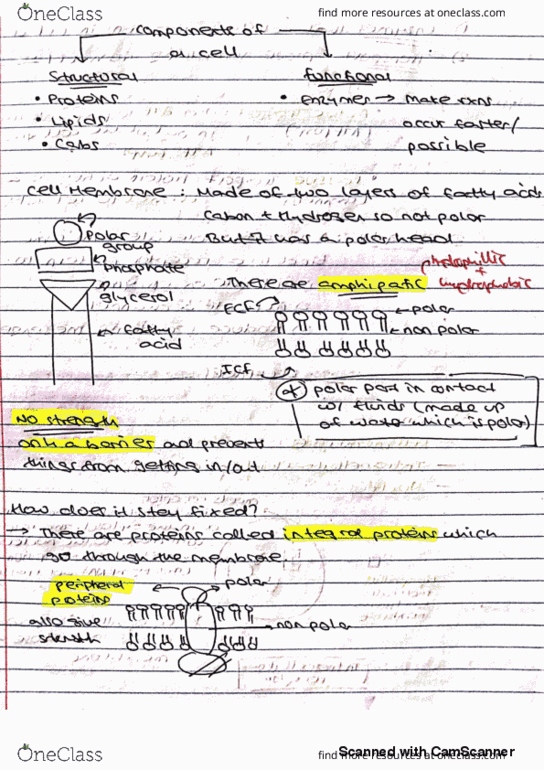 OneClass
find more resources at oneclass.com
components of
a cell
Structural
Functional
• Proteins
• Lipids
• Carbs
• enzymes → make rxns
occur faster/
possible
Cell Membrane : Made of two layers of fatty acids
Carbon + Hydrogen so not polar
But it has a polar head
Polar
group
phosphate
glycerol
fatty
acid
There are amphipatic
hydrophilic
+
hydrophobic
ECF
polar
non polar
ICF
polar part in contact
w/ fluids (made up
of water which is polar)
No strength
only a barrier and prevents
things from getting in/out
How does it stay fixed?
→ There are proteins called integral proteins which
go through the membrane.
peripheral
proteins
also give
strength
polar
non polar
OneClass
find more resources at oneclass.com
Scanned with CamScanner